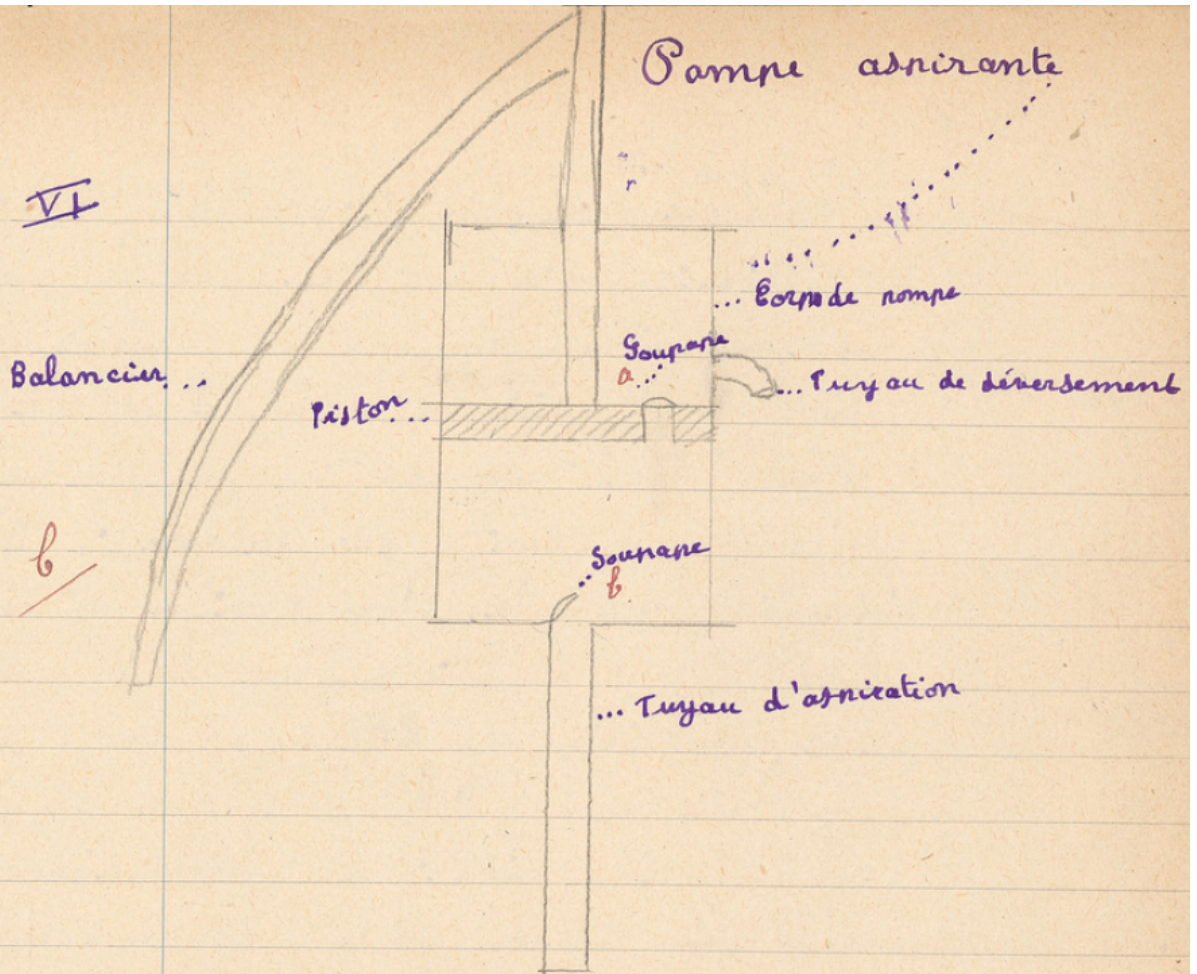 Pompe aspirante
VI
... Corps de pompe
Soupape
a...
Balancier...
... Tuyau de déversement
Piston...
Soupape
b
6
... Tuyau d'aspiration